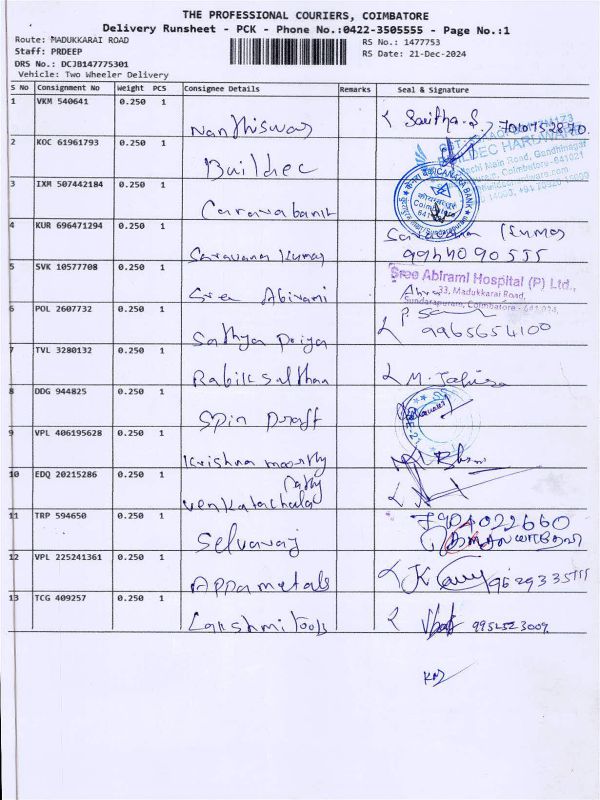 THE PROFESSIONAL COURIERS, COIMBATORE
Delivery Runsheet - PCK - Phone No.:0422-3505555 - Page No.:1
Route: MADUKKARAI ROAD
RS No.: 1477753
Staff: PRDEEP
RS Date: 21-Dec-2024
DRS No.: DCJB147775301
Vehicle: Two Wheeler Delivery
S No Consignment No Weight PCS Consignee Details Remarks Seal & Signature
1 VKM 540641 0.250 1 Nanthiswar Saritha.S 7010752870
2 KOC 61961793 0.250 1 Buildec
3 IXM 507442184 0.250 1 Canara bank CANARA BANK
Coimbatore
4 KUR 696471294 0.250 1 Saravana Kumar Saravana Kumar
9944090555
5 SVK 10577708 0.250 1 Sree Abirami Sree Abirami Hospital (P) Ltd.,
33, Madukkarai Road,
Sundarapuram, Coimbatore - 641 024.
6 POL 2607732 0.250 1 Sathya Priya 9965654100
7 TVL 3280132 0.250 1 Rabik Sulthan
8 DDG 944825 0.250 1 Spin Draft
9 VPL 406195628 0.250 1 Krishna moorthy
10 EDQ 20215286 0.250 1 Venkatachala pathy
11 TRP 594650 0.250 1 Selvaraj 7904022660
12 VPL 225241361 0.250 1 Appa metals 9629335555
13 TCG 409257 0.250 1 Lakshmi Tools